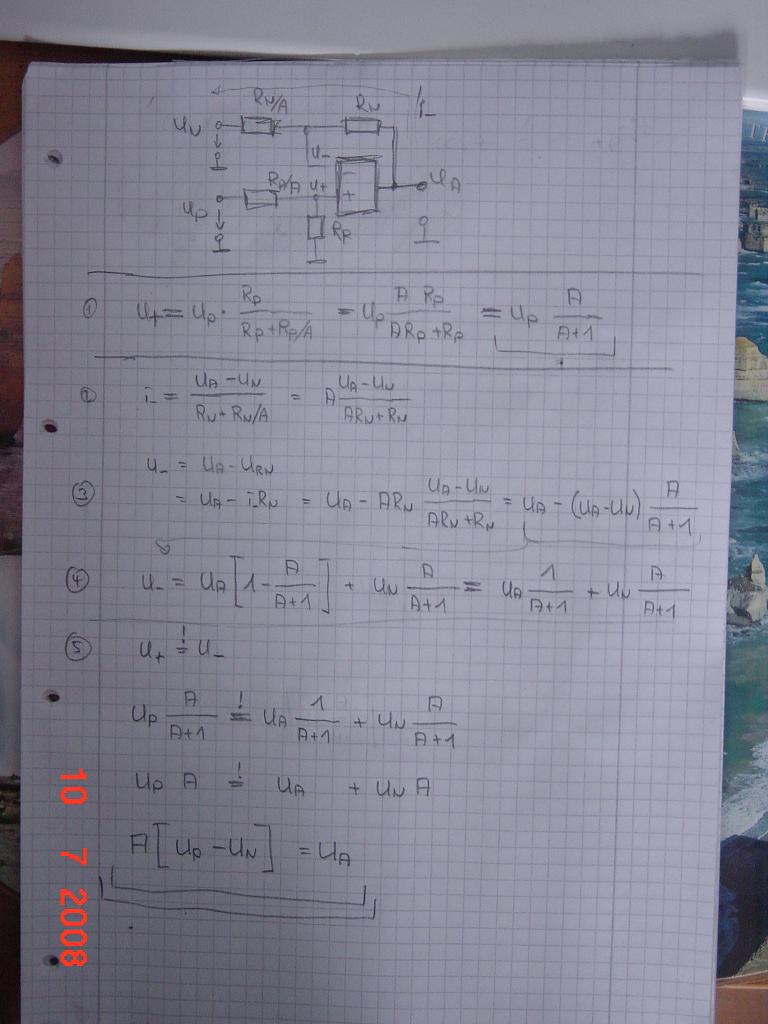 R_N/A R_N i_-
U_N U_-
R_P/A U_+ - U_A
U_P + R_P
① U_+ = U_P · R_P/(R_P + R_P/A) = U_P A R_P/(A R_P + R_P) = U_P A/(A+1)
② i_- = (U_A - U_N)/(R_N + R_N/A) = A (U_A - U_N)/(A R_N + R_N)
U_- = U_A - U_RN
③ = U_A - i_- R_N = U_A - A R_N (U_A - U_N)/(A R_N + R_N) = U_A - (U_A - U_N) A/(A+1)
④ U_- = U_A [1 - A/(A+1)] + U_N A/(A+1) = U_A 1/(A+1) + U_N A/(A+1)
⑤ U_+ =! U_-
U_P A/(A+1) =! U_A 1/(A+1) + U_N A/(A+1)
U_P A =! U_A + U_N A
A [U_P - U_N] = U_A
10 7 2008